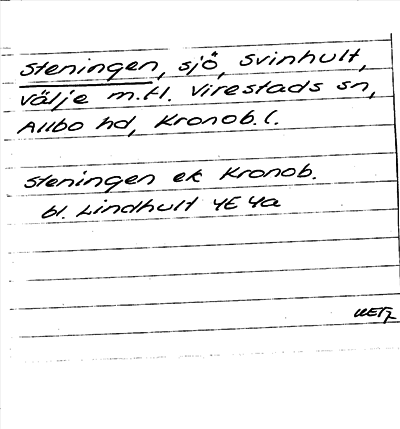 Steningen, sjö, Svinhult,
Välje m.fl. Virestads sn,
Allbo hd, Kronob. l.
Steningen ek Kronob.
bl. Lindhult 4E 4a